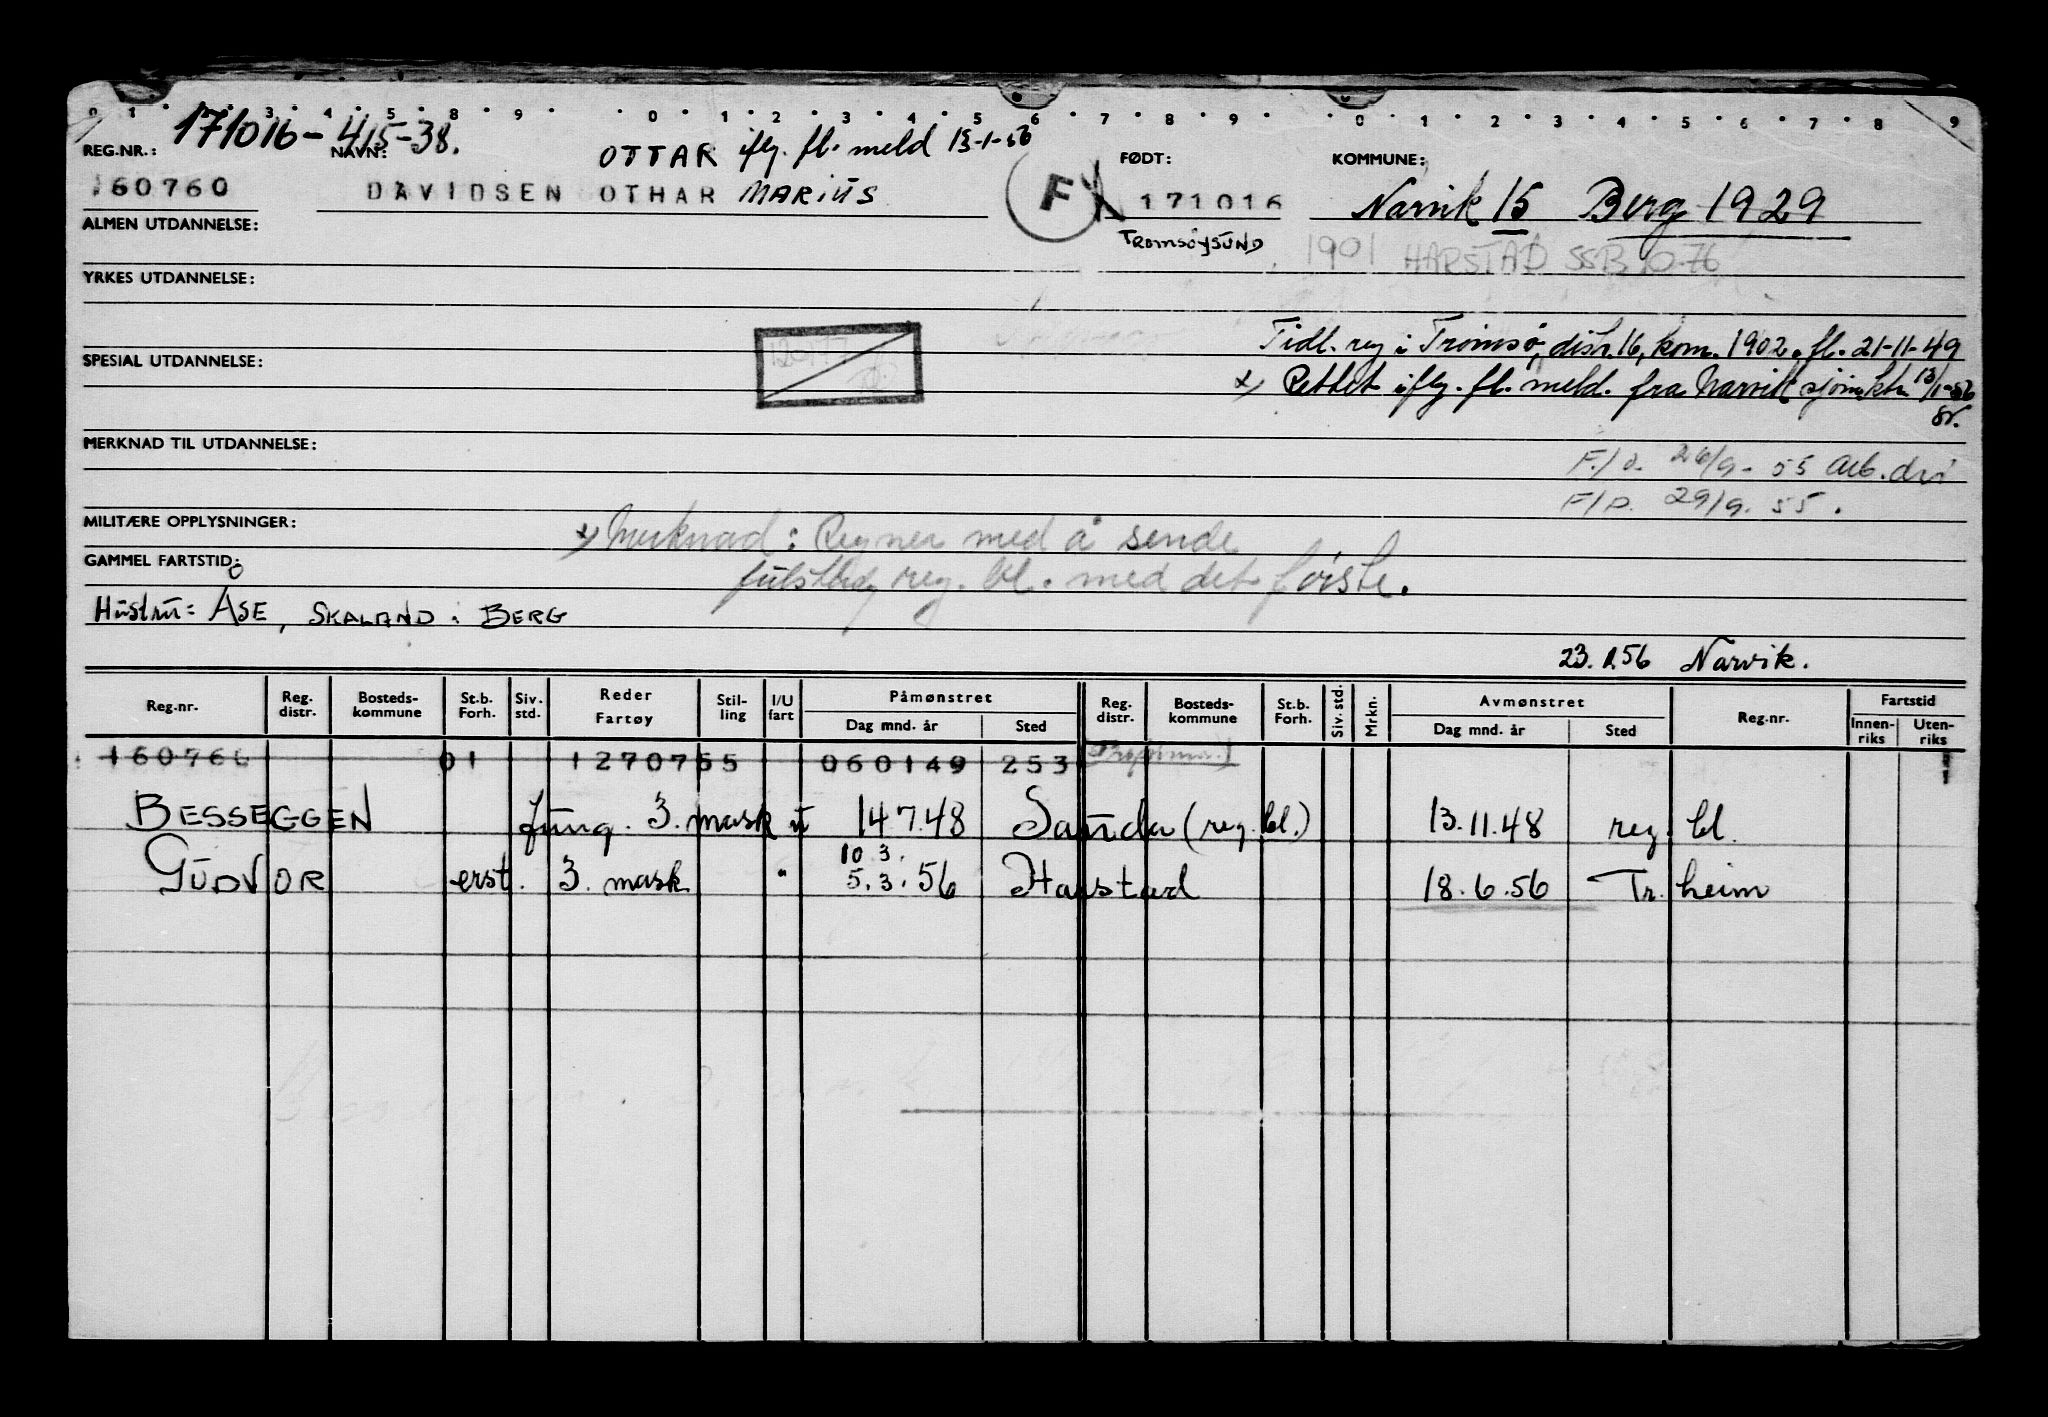 0 1 3 4 5 8 9 0 1 2 3 4 5 6 7 8 9 0 1 2 3 4 5 6 7 8 9
171016-415-38.
REG.NR.: NAVN: OTTAR iflg. fl. meld 13-1-56 FØDT: KOMMUNE:
160760 DAVIDSEN OTHAR MARIUS F 171016 Narvik 15 Berg 1929
ALMEN UTDANNELSE: TROMSØYSUND 1901 HARSTAD SSB 10-76
YRKES UTDANNELSE:
Tidl. reg i Tromsø, distr. 16, kom. 1902. fl. 21-11-49
SPESIAL UTDANNELSE: 120177
x) Rettet iflg. fl. meld. fra Narvik sjøm.ktr 13/1-56
MERKNAD TIL UTDANNELSE:
F/O. 26/9-55 Arb.dir
F/O. 29/9.55.
MILITÆRE OPPLYSNINGER: x) Merknad: Regner med å sende
GAMMEL FARTSTID: fullstdg reg. bl. med det første.
Hustru: ÅSE, SKALAND i BERG
23.1.56 Narvik.
Reg.nr. Reg. distr. Bosteds-kommune St.b. Forh. Siv. std. Reder Fartøy Stil-ling I/U fart Påmønstret Dag mnd. år Sted Reg. distr. Bosteds-kommune St.b. Forh. Siv. std. Mrkn. Avmønstret Dag mnd. år Sted Reg.nr. Fartstid Innen-riks Uten-riks
160760 01 1270755 060149 253 (Proforma.)
BESSEGGEN fung. 3. mask u 14 7.48 Sauda (reg. bl.) 13.11.48 reg. bl.
10 3.
GUDVOR erst. 3. mask " 5.3.56 Harstad 18.6.56 Tr.heim